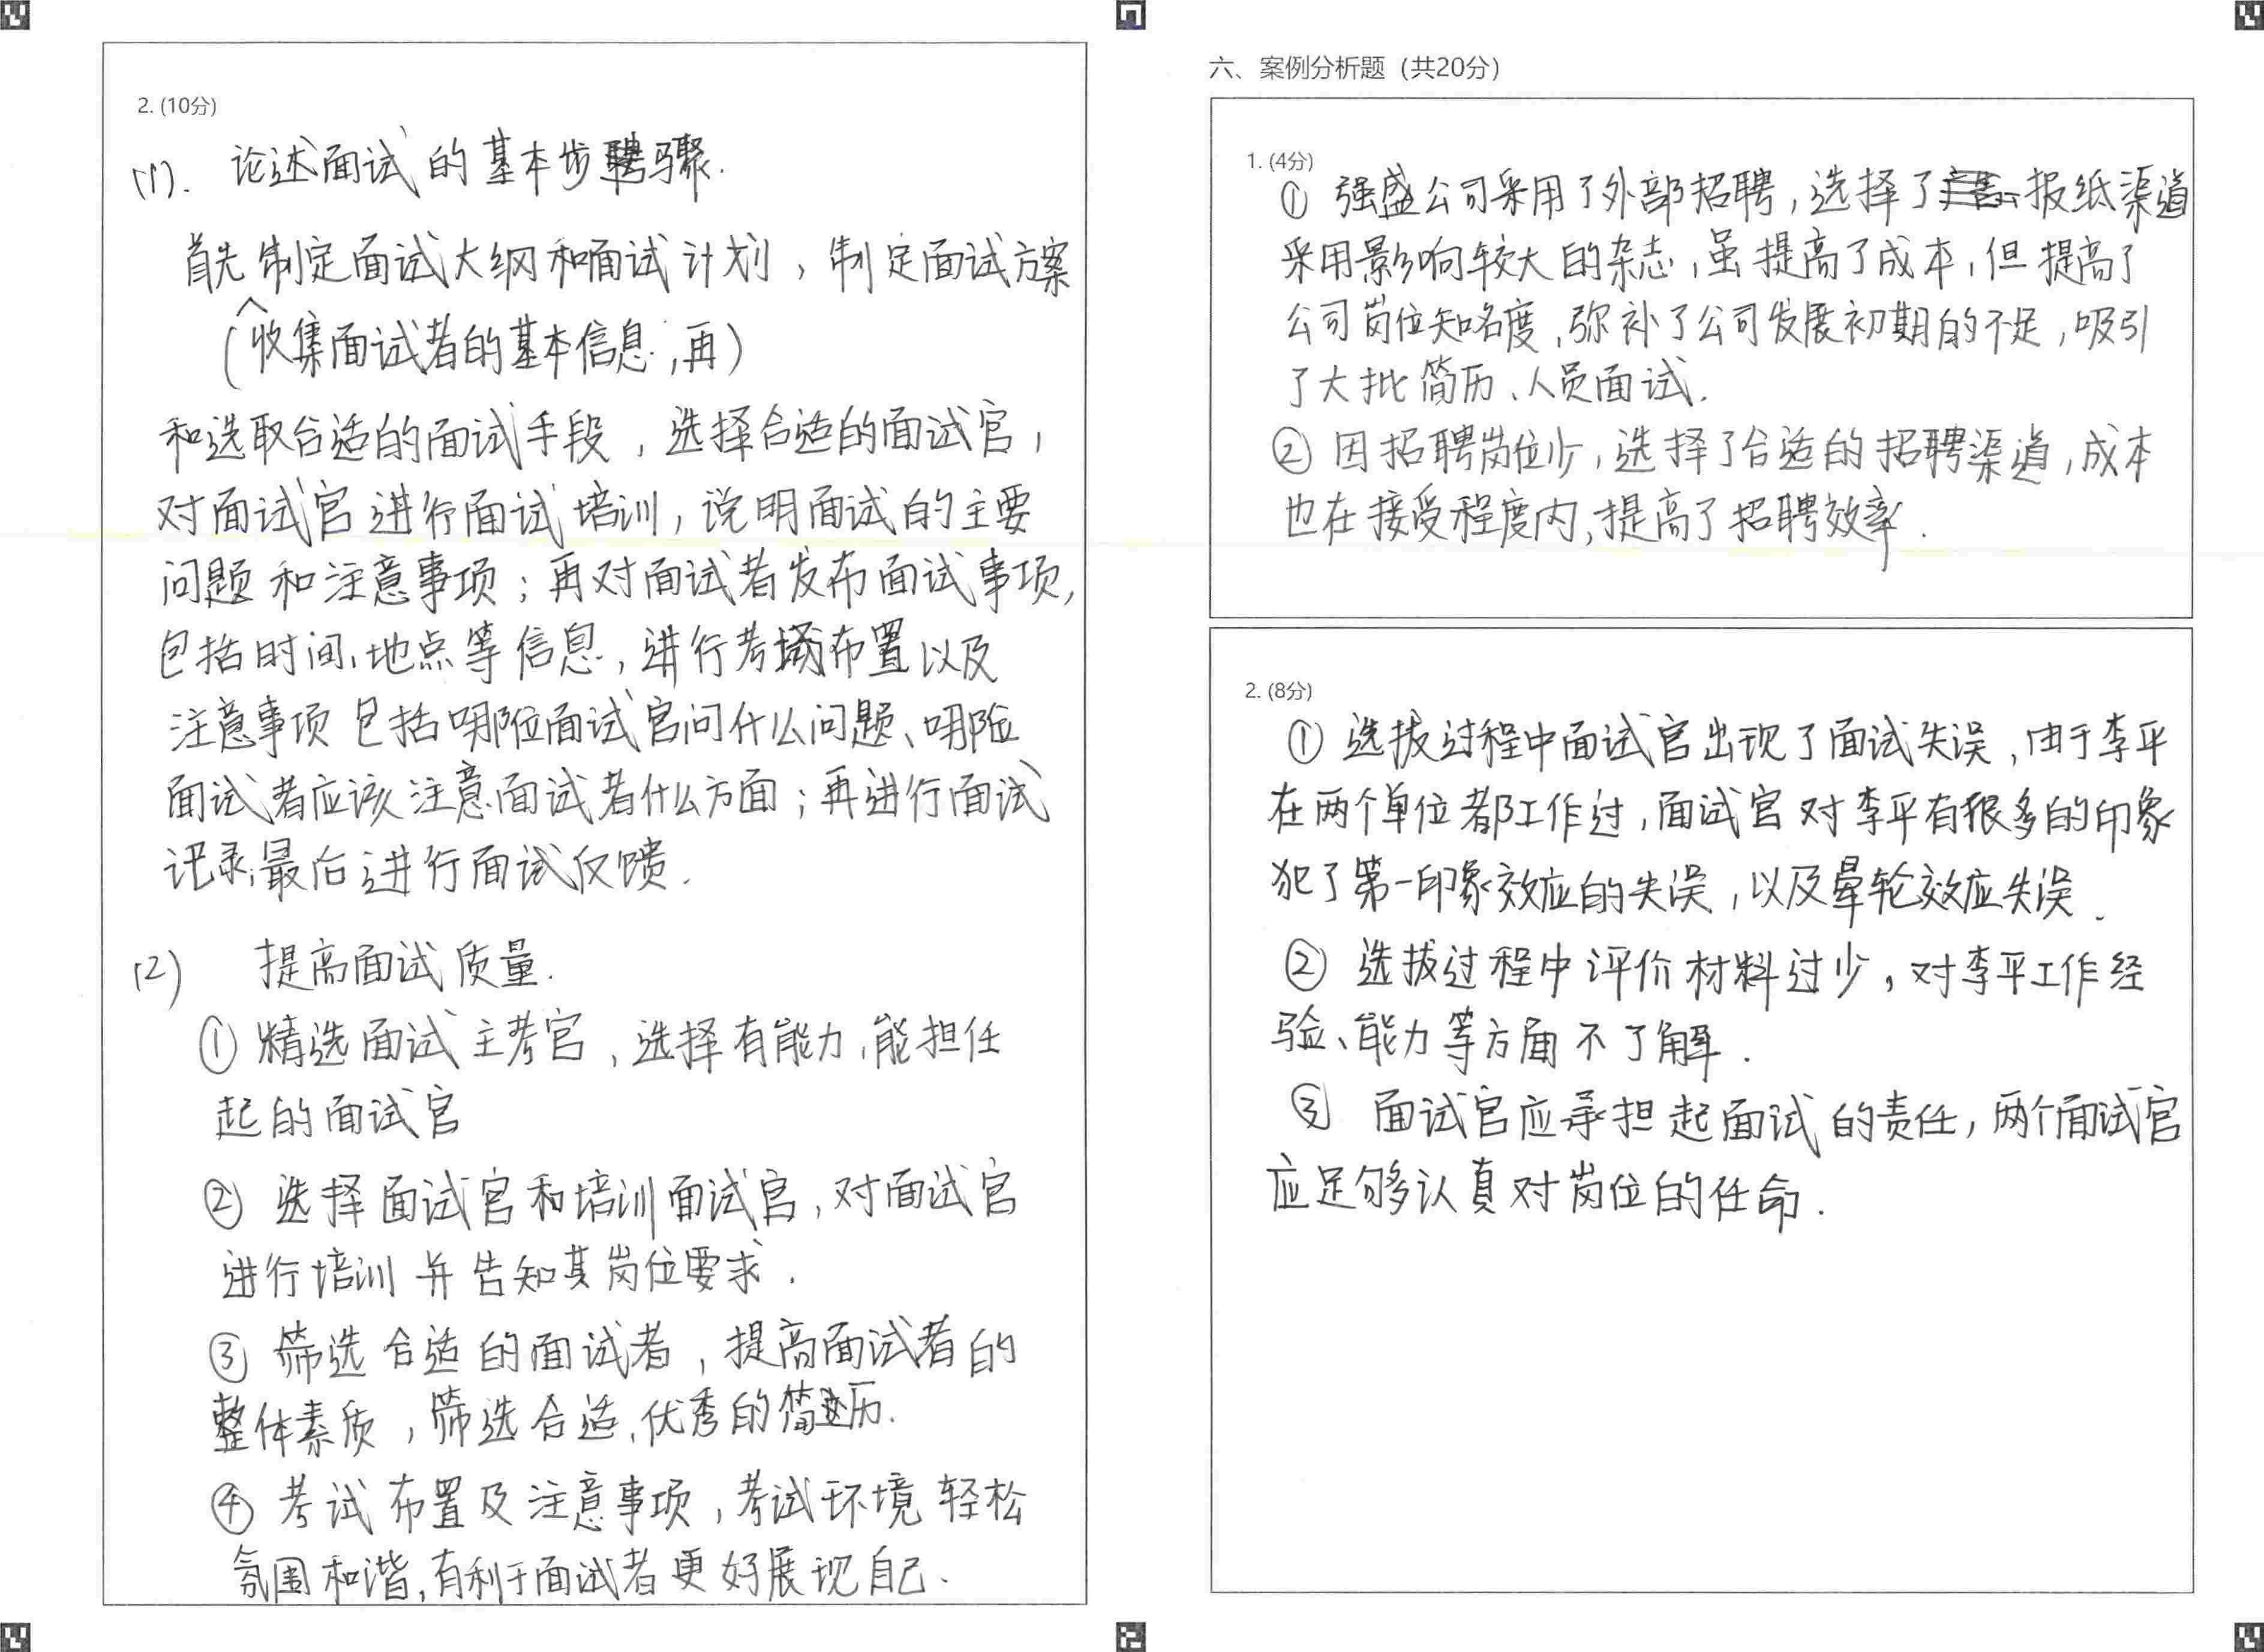 2. (10分)
(1). 论述面试的基本步骤.
首先制定面试大纲和面试计划，制定面试方案
(收集面试者的基本信息,再)
和选取合适的面试手段，选择合适的面试官，
对面试官进行面试培训，说明面试的主要
问题和注意事项；再对面试者发布面试事项，
包括时间、地点等信息，进行考场布置以及
注意事项包括哪位面试官问什么问题、哪位
面试者应该注意面试者什么方面；再进行面试
记录;最后进行面试反馈.
(2) 提高面试质量.
① 精选面试主考官，选择有能力,能担任
起的面试官
② 选择面试官和培训面试官，对面试官
进行培训并告知其岗位要求.
③ 筛选合适的面试者，提高面试者的
整体素质，筛选合适,优秀的简历.
④ 考试布置及注意事项，考试环境轻松
氛围和谐,有利于面试者更好展现自己.
六、案例分析题（共20分）
1. (4分)
① 强盛公司采用了外部招聘，选择了报纸渠道
采用影响较大的杂志,虽提高了成本,但提高了
公司岗位知名度,弥补了公司发展初期的不足，吸引
了大批简历、人员面试.
② 因招聘岗位少，选择了合适的招聘渠道，成本
也在接受程度内,提高了招聘效率.
2. (8分)
① 选拔过程中面试官出现了面试失误，由于李平
在两个单位都工作过，面试官对李平有很多的印象
犯了第一印象效应的失误，以及晕轮效应失误.
② 选拔过程中评价材料过少，对李平工作经
验、能力等方面不了解.
③ 面试官应承担起面试的责任，两个面试官
应足够认真对岗位的任命.